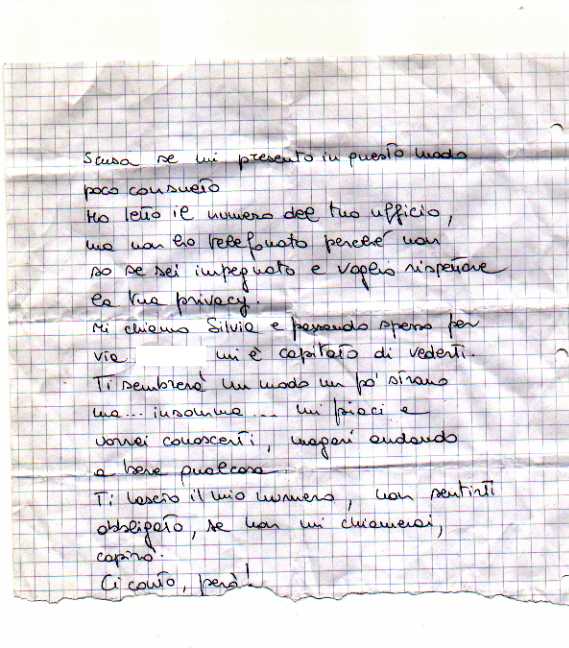 Scusa se mi presento in questo modo
poco consueto
Ho letto il numero del tuo ufficio,
ma non ho telefonato perché non
so se sei impegnato e voglio rispettare
la tua privacy.
Mi chiamo Silvia e passando spesso per
via mi è capitato di vederti.
Ti sembrerà un modo un pò strano
ma... insomma... mi piaci e
vorrei conoscerti, magari andando
a bere qualcosa.
Ti lascio il mio numero, non sentirti
obbligato, se non mi chiamerai,
capirò.
Ci conto, però!